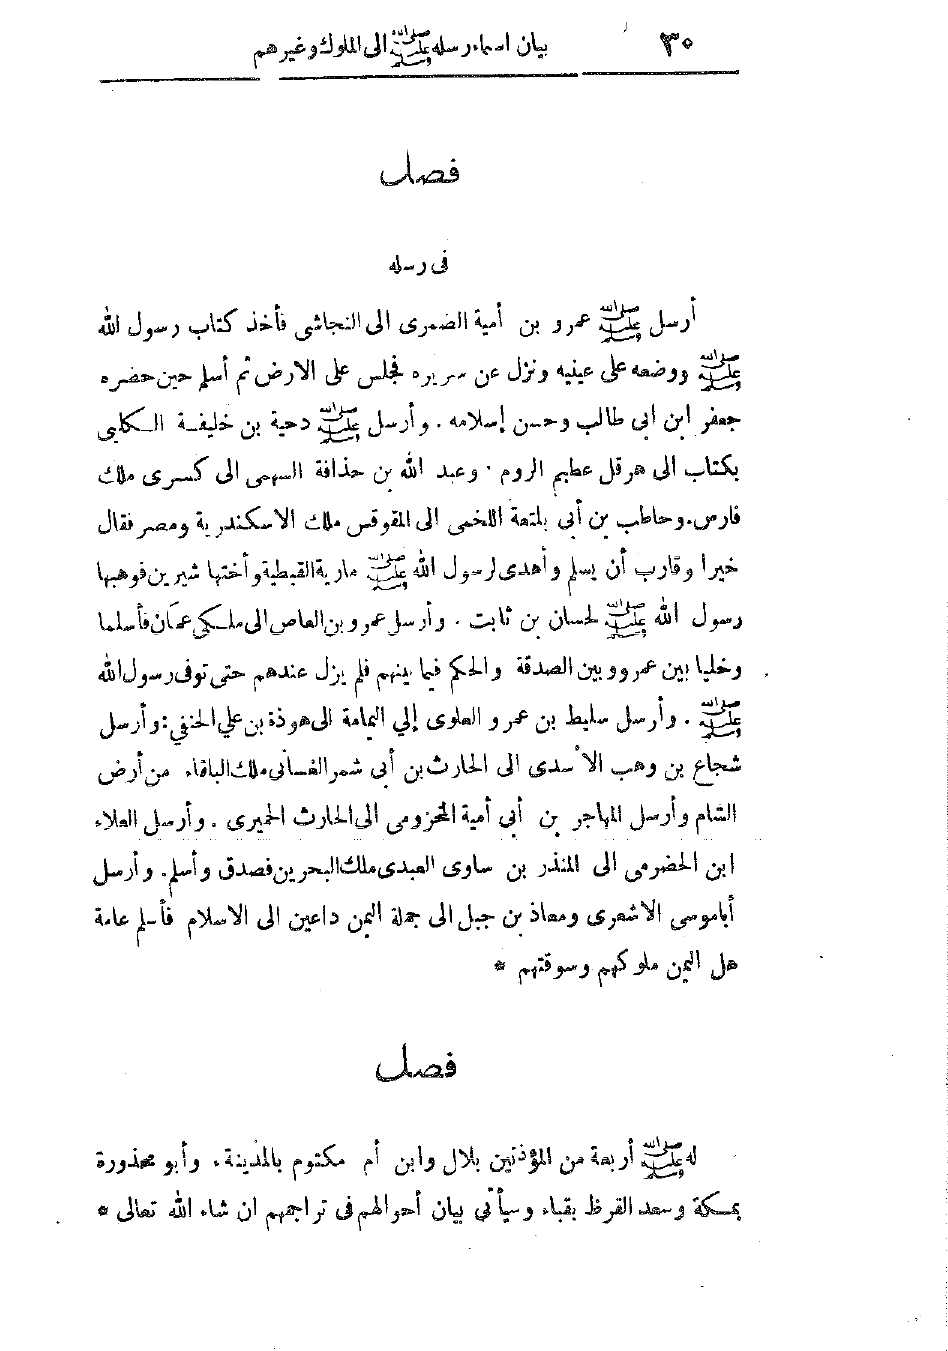 ٣٠ بيان اسماء رسله ﷺ الى الملوك وغيرهم
فصل
فى رسله
أرسل ﷺ عمرو بن أمية الضمرى الى النجاشى فأخذ كتاب رسول الله
ﷺ ووضعه على عينيه ونزل عن سريره فجلس على الارض ثم أسلم حين حضره
جعفر ابن ابى طالب وحسن إسلامه . وأرسل ﷺ دحية بن خليفة الكلبى
بكتاب الى هرقل عظيم الروم . وعبد الله بن حذافة السهمى الى كسرى ملك
فارس. وحاطب بن أبي بلتعة اللخمى الى المقوقس ملك الاسكندرية ومصر فقال
خيرا وقارب أن يسلم وأهدى لرسول الله ﷺ مارية القبطية وأختها شيرين فوهبها
رسول الله ﷺ لحسان بن ثابت . وأرسل عمرو بن العاص الى ملكي عمان فأسلما
وخليا بين عمرو وبين الصدقة والحكم فيما بينهم فلم يزل عندهم حتى توفى رسول الله
ﷺ . وأرسل سليط بن عمرو العلوى إلي اليمامة الى هوذة بن علي الحنفي : وأرسل
شجاع بن وهب الأسدى الى الحارث بن أبي شمر الغسانى ملك البلقاء من أرض
الشام وأرسل المهاجر بن أبي أمية المخزومى الى الحارث الحميرى . وأرسل العلاء
ابن الحضرمى الى المنذر بن ساوى العبدى ملك البحرين فصدق وأسلم. وأرسل
أباموسى الاشعرى ومعاذ بن جبل الى جملة اليمن داعين الى الاسلام فأسلم عامة
هل اليمن ملوكهم وسوقتهم *
فصل
له ﷺ أربعة من المؤذنين بلال وابن أم مكتوم بالمدينة، وأبو محذورة
بمكة وسعد القرظ بقباء وسيأتي بيان أحوالهم فى تراجمهم ان شاء الله تعالى *